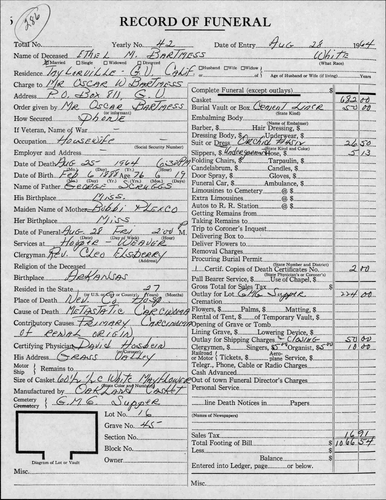 286
RECORD OF FUNERAL
Total No. Yearly No. 42 Date of Entry Aug 28 1964
Name of Deceased Ethel M. Bartmess White
Married Single Widowed Divorced (What Race)
Residence Taylorville - G.V. Calif. Age of Husband or Wife (if living) Years
Charge to Mr Oscar W Bartmess
Address P.O. Box 811, G.V.
Order given by Mr Oscar Bartmess
How Secured Phone
If Veteran, Name of War
Occupation Housewife
Employer and Address (Social Security Number)
Date of Death Aug 25 - 1964 6:30 PM
Date of Birth Feb 6 1888 Age 76 6 19
Name of Father George Scruggs
His Birthplace Miss.
Maiden Name of Mother
Her Birthplace Miss
Date of Funeral Aug 28 Fri 2:00 P
Services at Hooper - Weaver
Clergyman Rev. Cleo Elsberry
Religion of the Deceased
Birthplace Arkansas
Resided in the State 27
Place of Death Nev. Co Hosp
Cause of Death Metastatic Carcinoma
Contributory Causes Primary Carcinoma
of Renal Origin
Certifying Physician David
His Address Grass Valley
Motor Ship Remains to
Size of Casket White Mayflower
Manufactured by Oakland Caskt
Cemetery Crematory G.M.G. Supper
Lot No. 16
Grave No. 45
Section No.
Block No.
Owner
Diagram of Lot or Vault
Misc.
Complete Funeral (except outlays) $
Casket 682 00
Burial Vault or Box Cement Liner 50 00
Embalming Body
Barber, $ Hair Dressing, $
Dressing Body, $ Underwear, $
Suit or Dress Orchid 26 50
Slippers, $ Hose, $ 5 13
Folding Chairs, $ Tarpaulin, $
Candelabrum, $ Candles, $
Door Spray, $ Gloves, $
Funeral Car, $ Ambulance, $
Limousines to Cemetery @ $
Extra Limousines @ $
Autos to R. R. Station @ $
Getting Remains from
Taking Remains to
Trip to Coroner's Inquest
Delivering Box to
Deliver Flowers to
Removal Charges
Procuring Burial Permit
1 Certif. Copies of Death Certificates No. 2 00
Pall Bearer Service, $ Use of Chapel, $
Gross Total for Sales Tax
Outlay for Lot GMG Supper 224 00
Cremation
Flowers, $ Palms, $ Matting, $
Rental of Tent, $ of Temporary Vault, $
Opening of Grave or Tomb
Lining Grave, $ Lowering Device, $
Outlay for Shipping Charges Closing 50 00
Clergymen, $ Singers, $5.00 Organist, $5.00 10 00
Railroad or Motor Tickets, $ Aeroplane Service, $
Telegr., Phone, Cable or Radio Charges
Cash Advanced
Out of town Funeral Director's Charges
Personal Services
line Death Notices in Papers
(Names of Newspapers)
Sales Tax 16 91
Total Footing of Bill $ 1066 54
Less
Balance $
Entered into Ledger, page or below.
Misc.